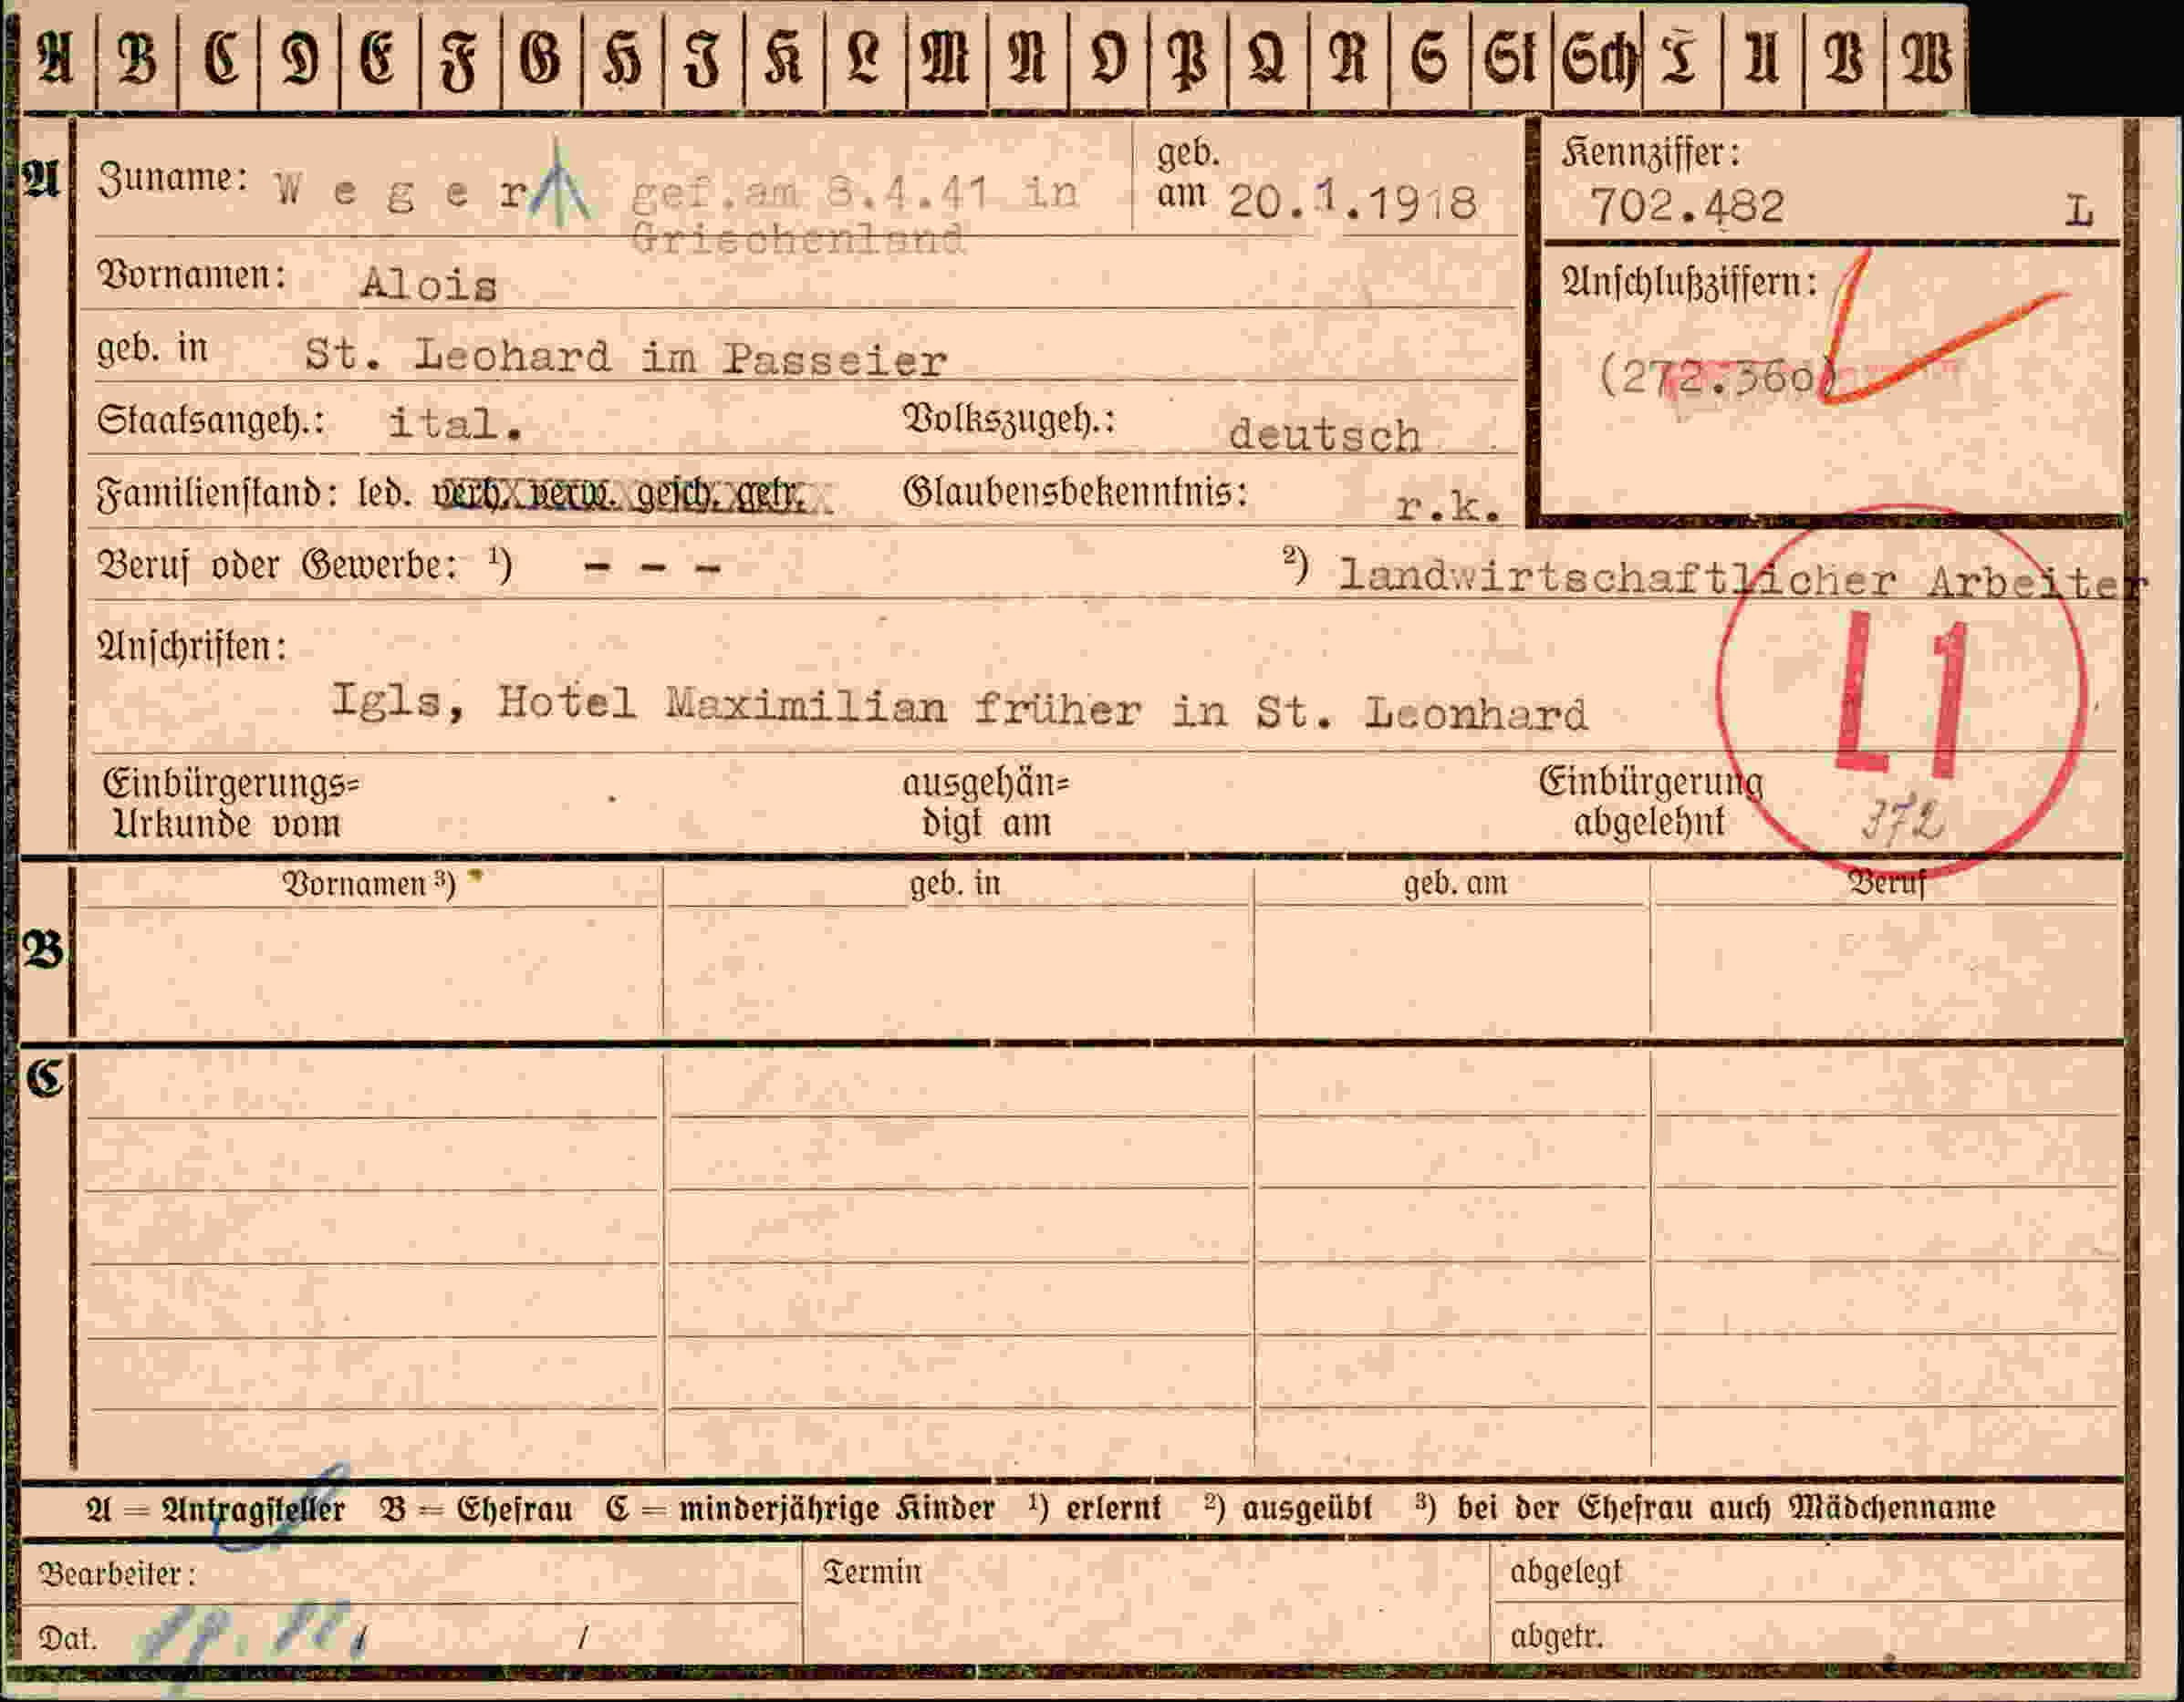 A B C D E F G H I K L M N O P Q R S St Sch T U V W
A Zuname: W e g e r gef.am 8.4.41 in geb. am 20.1.1918 Kennziffer: 702.482 L
Grischenland
Vornamen: Alois Anschlußziffern:
geb. in St. Leohard im Passeier (272.360)
Staatsangeh.: ital. Volkszugeh.: deutsch
Familienstand: led. verh. verw. gesch. getr. Glaubensbekenntnis: r.k.
Beruf oder Gewerbe: ¹) - - - ²) landwirtschaftlicher Arbeiter
Anschriften: L1
Igls, Hotel Maximilian früher in St. Leonhard
Einbürgerungs= ausgehän= Einbürgerung
Urkunde vom digt am abgelehnt 372
Vornamen ³) geb. in geb. am Beruf
B
C
A = Antragsteller B = Ehefrau C = minderjährige Kinder ¹) erlernt ²) ausgeübt ³) bei der Ehefrau auch Mädchenname
Bearbeiter: Termin abgelegt
Dat. / / abgetr.